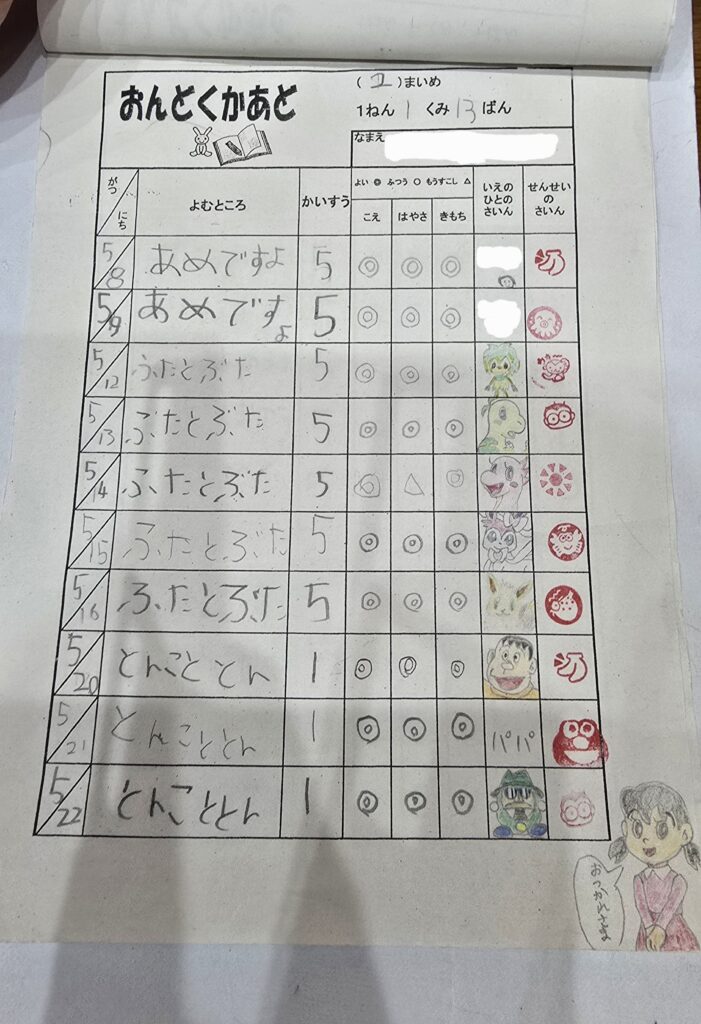 おんどくかあど
(2)まいめ
1ねん 1 くみ 13 ばん
なまえ
がつ にち
よむところ
かいすう
よい ◎ ふつう ○ もうすこし △
こえ
はやさ
きもち
いえのひとのさいん
せんせいのさいん
5/8 あめですよ 5 ◎ ◎ ◎
5/9 あめですよ 5 ◎ ◎ ◎
5/12 ふたとぶた 5 ◎ ◎ ◎
5/13 ぶたとぶた 5 ◎ ◎ ◎
5/14 ふたとぶた 5 △ ○
5/15 ふたとぶた 5 ◎ ◎ ◎
5/16 ふたとぶた 5 ◎ ◎ ◎
5/20 とんこととん 1 ◎ ◎ ◎
5/21 とんこととん 1 ◎ ◎ ◎ パパ
5/22 とんこととん 1 ◎ ◎ ◎
おつかれさま